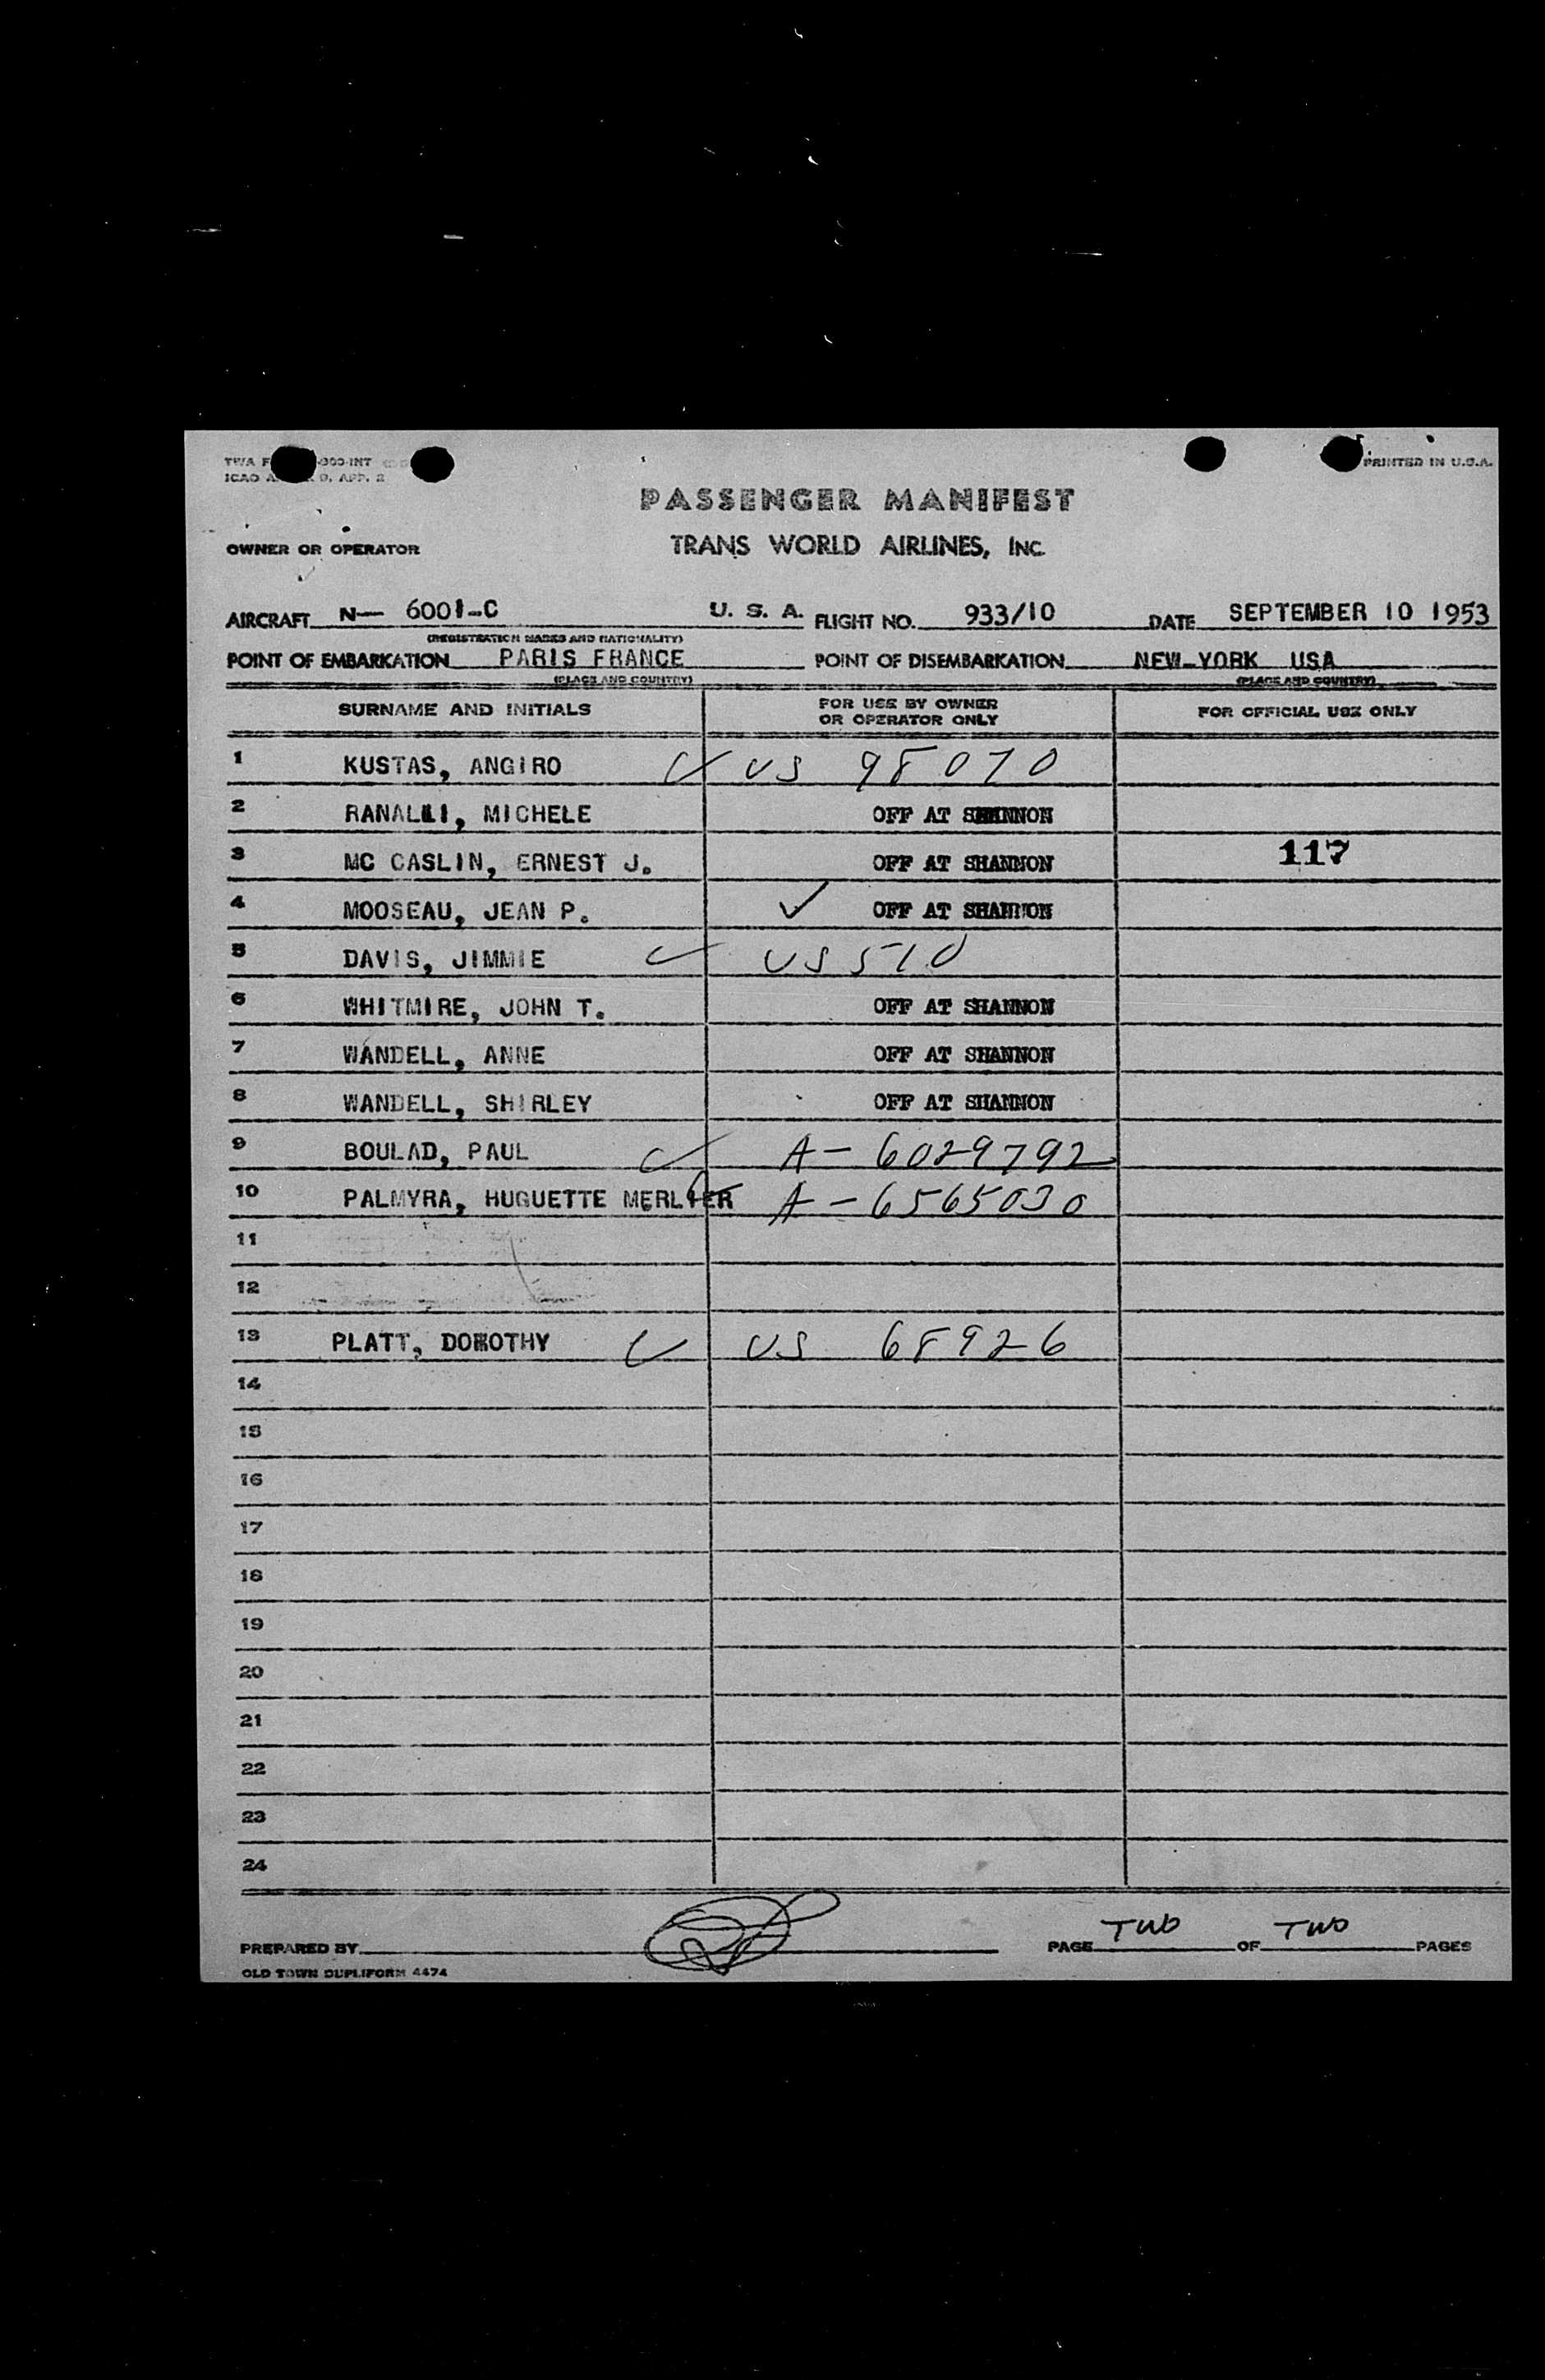 TWA F 300-INT
ICAO A 9, APP. 2
PRINTED IN U.S.A.
PASSENGER MANIFEST
OWNER OR OPERATOR TRANS WORLD AIRLINES, INC.
AIRCRAFT N— 6001-C U. S. A. FLIGHT NO. 933/10 DATE SEPTEMBER 10 1953
(REGISTRATION MARKS AND NATIONALITY)
POINT OF EMBARKATION PARIS FRANCE POINT OF DISEMBARKATION NEW-YORK USA
(PLACE AND COUNTRY) (PLACE AND COUNTRY)
SURNAME AND INITIALS FOR USE BY OWNER OR OPERATOR ONLY FOR OFFICIAL USE ONLY
1 KUSTAS, ANGIRO ✓ US 98070
2 RANALLI, MICHELE OFF AT SHANNON
3 MC CASLIN, ERNEST J. OFF AT SHANNON 117
4 MOOSEAU, JEAN P. ✓ OFF AT SHANNON
5 DAVIS, JIMMIE ✓ US 510
6 WHITMIRE, JOHN T. OFF AT SHANNON
7 WANDELL, ANNE OFF AT SHANNON
8 WANDELL, SHIRLEY OFF AT SHANNON
9 BOULAD, PAUL ✓ A-6029792
10 PALMYRA, HUGUETTE MERLIER A-6565030
11
12
13 PLATT, DOROTHY ✓ US 68926
14
15
16
17
18
19
20
21
22
23
24
PREPARED BY PAGE TWO OF TWO PAGES
OLD TOWN DUPLIFORM 4474